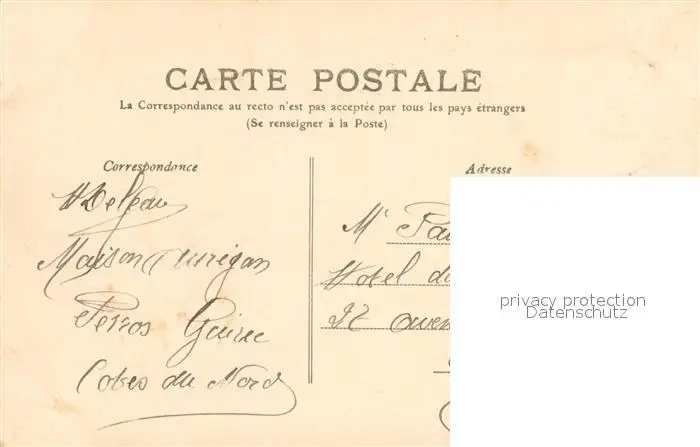 CARTE POSTALE
La Correspondance au recto n'est pas acceptée par tous les pays étrangers
(Se renseigner à la Poste)
Correspondance
Adresse
Maison
Perros Guirec
Cotes du Nord
Mr
Hotel du
privacy protection
Datenschutz